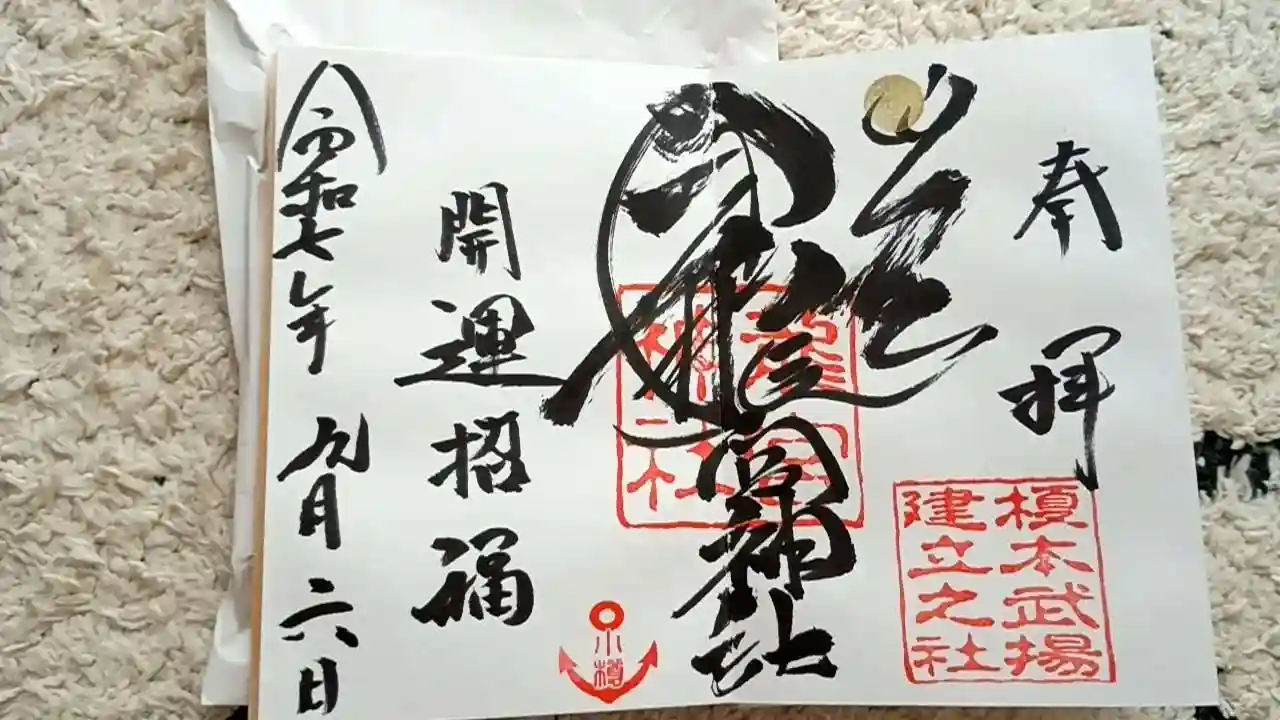 奉拝
榎本武揚
建立之社
龍宮神社
龍宮
神社
小樽
開運招福
令和七年九月六日